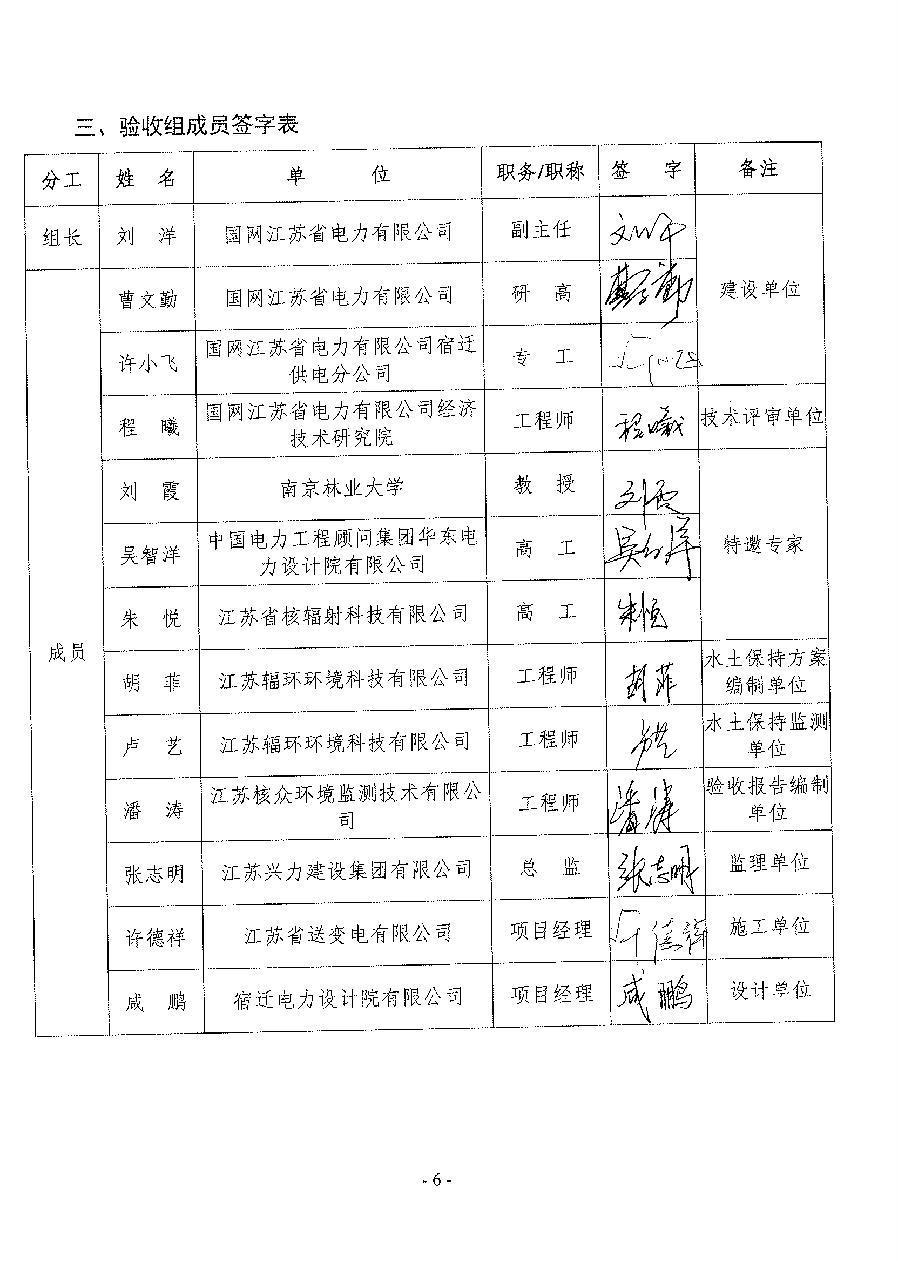 三、验收组成员签字表
分工 姓 名 单 位 职务/职称 签 字 备注
组长 刘 洋 国网江苏省电力有限公司 副主任
成员 曹文勤 国网江苏省电力有限公司 研 高 建设单位
许小飞 国网江苏省电力有限公司宿迁
供电分公司 专 工
程 曦 国网江苏省电力有限公司经济
技术研究院 工程师 程曦 技术评审单位
刘 霞 南京林业大学 教 授 刘霞
吴智洋 中国电力工程顾问集团华东电
力设计院有限公司 高 工 特邀专家
朱 悦 江苏省核辐射科技有限公司 高 工
胡 菲 江苏辐环环境科技有限公司 工程师 胡菲 水土保持方案
编制单位
卢 艺 江苏辐环环境科技有限公司 工程师 水土保持监测
单位
潘 涛 江苏核众环境监测技术有限公
司 工程师 潘涛 验收报告编制
单位
张志明 江苏兴力建设集团有限公司 总 监 张志明 监理单位
许德祥 江苏省送变电有限公司 项目经理 许德祥 施工单位
咸 鹏 宿迁电力设计院有限公司 项目经理 咸鹏 设计单位
- 6 -